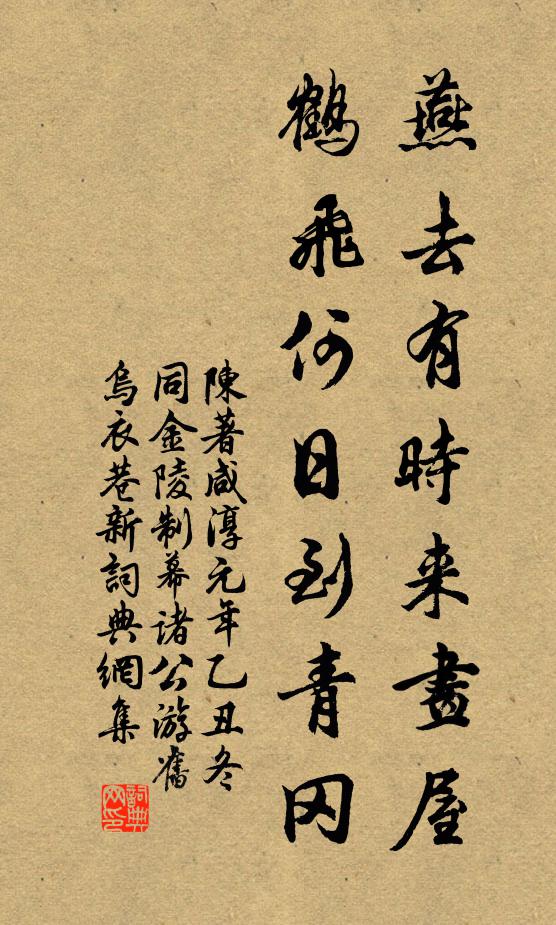 燕去有時来畫屋
鶴飛何日到青冈
陳著咸淳元年乙丑冬
同金陵制幕诸公游舊
烏衣巷新詞典網集
詞典网印